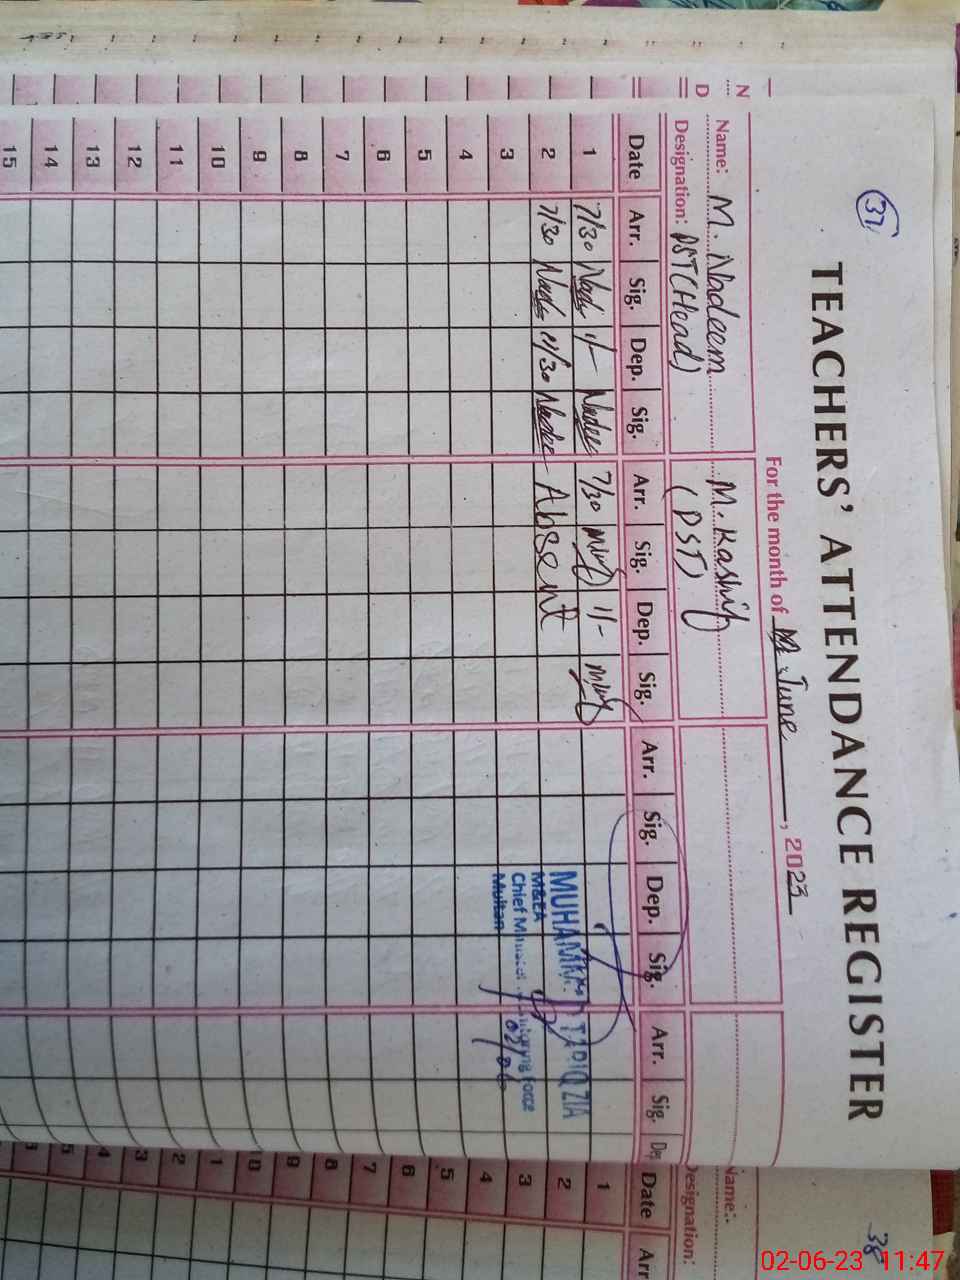 37
TEACHERS' ATTENDANCE REGISTER
For the month of June, 2023
Name: M. Nadeem M. Kashif
Designation: PST(Head) (PST)
Date Arr. Sig. Dep. Sig. Arr. Sig. Dep. Sig. Arr. Sig. Dep. Sig. Arr. Sig. Dep
1 7/30 11/- Nadee 7/30 11-
2 7/30 11/30 Nadee Absent
3
4
5
6
7
8
9
10
11
12
13
14
15
MUHAMMAD TARIQ ZIA
M&EA
Chief Minister Monitoring Force
Multan
02/06
38
Name:-
Designation:
Date Arr
1
2
3
4
5
6
7
8
9
10
1
2
3
4
5
N
D
02-06-23 11:47